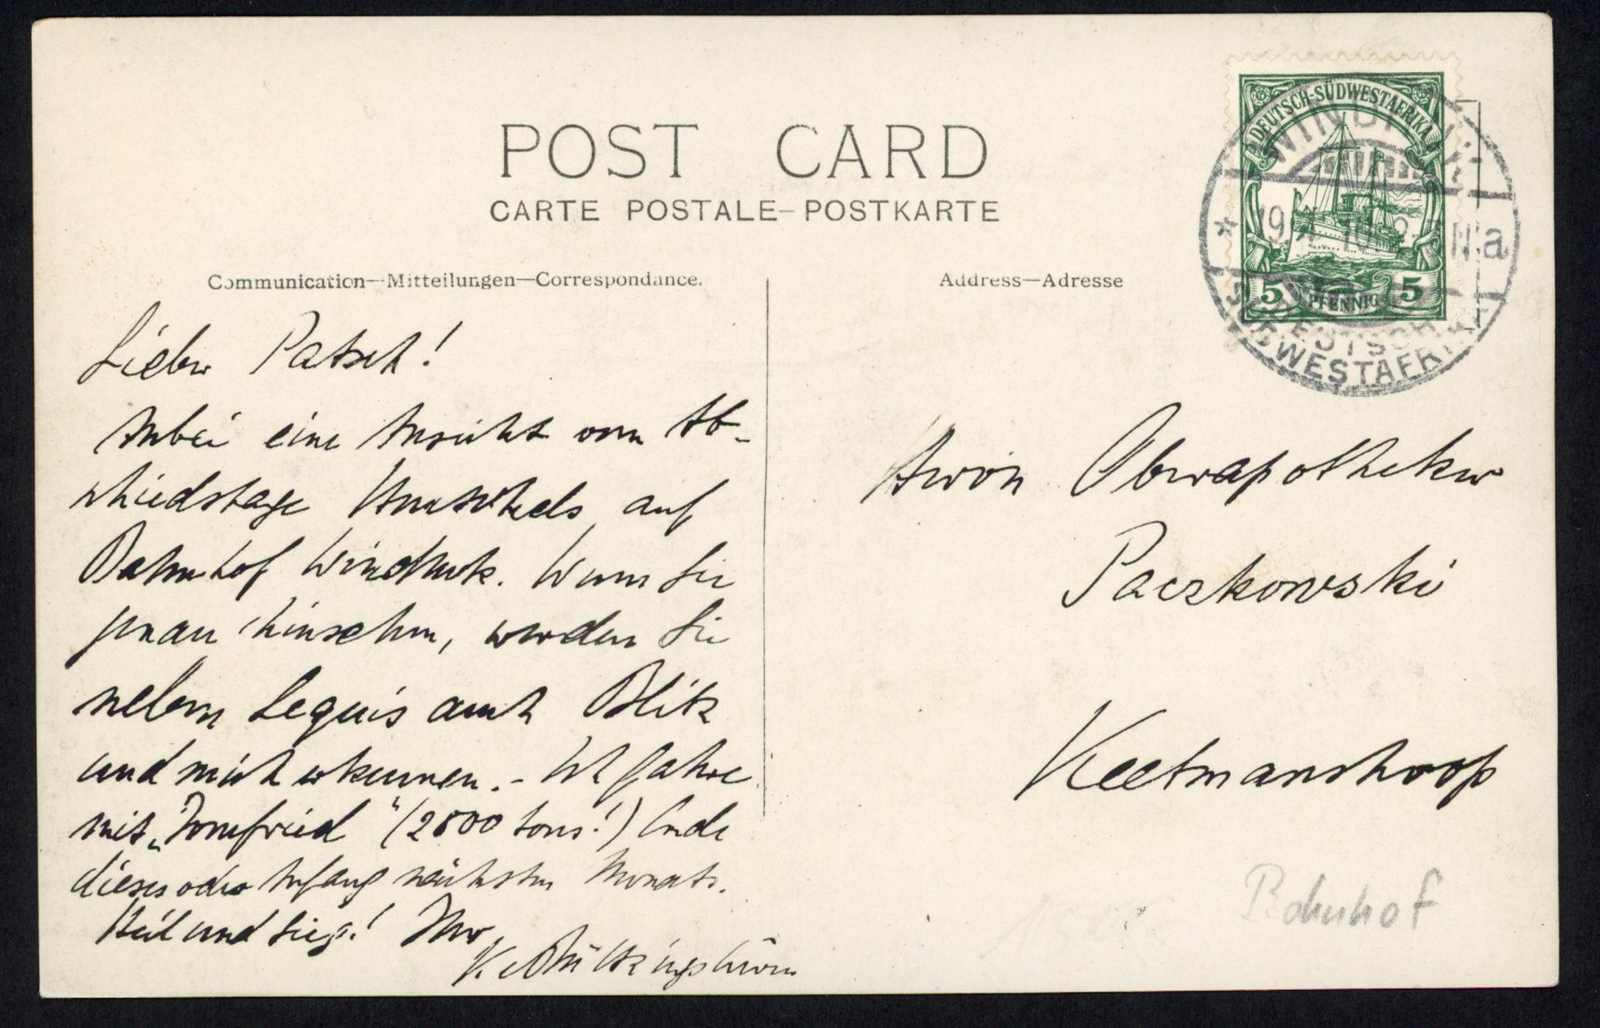 POST CARD
CARTE POSTALE—POSTKARTE
Communication—Mitteilungen—Correspondance.
Address—Adresse
DEUTSCH-SÜDWESTAFRIKA
5 PFENNIG 5
WINDHUK
DEUTSCH-
SÜDWESTAFRIKA
Lieber Patsch!
Anbei eine Ansicht vom Ab-
schiedstage auf
Bahnhof Windhuk. Wenn Sie
genau hinsehen, werden Sie
neben Lequis auch Blitz
und mich erkennen. - Ich fahre
mit „Irmfried" (2800 tons!) Ende
dieses oder Anfang nächsten Monats.
Heil und Sieg! Ihr
Herrn Oberapotheker
Paczkowski
Keetmanshoop
Bahnhof